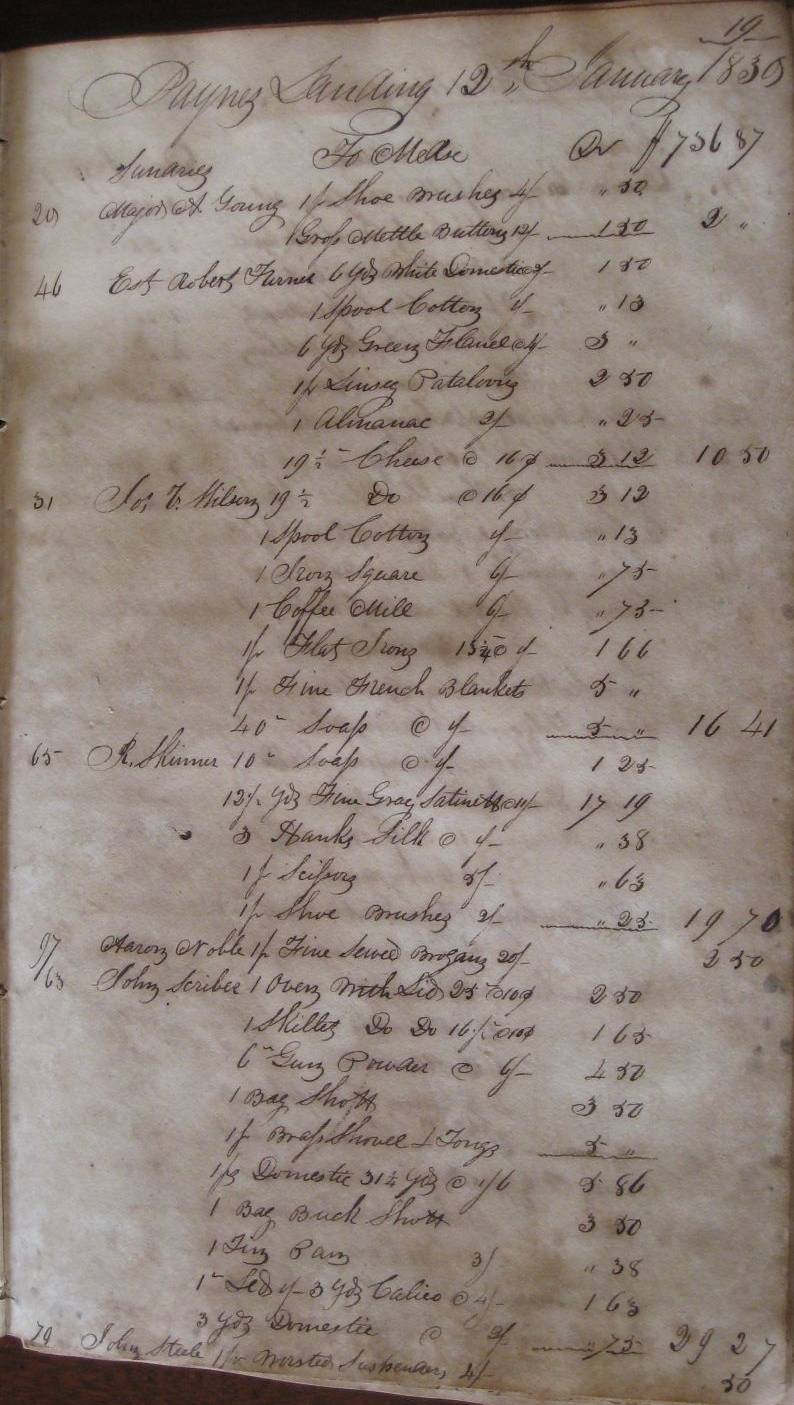 19
Paynes Landing 12th January 1830
Sundries To Mdse Dr $736 87
20 Major A Young 1 pr Shoe Brushes 4/- " 50
1 Gross Mettle Buttons 12/- 1 50 2 "
46 Est Robert Turner 6 Yds White Domestic @ 2/- 1 50
1 Spool Cotton 1/- " 13
6 Yds Green Flanel @ 4/- 3 "
1 pr Linsey Pataloons 2 50
1 Almanac 2/- " 25
19 ½ " Cheese @ 16 ¢ 3 12 10 50
31 Jos T. Wilson 19 ½ Do @ 16 ¢ 3 12
1 Spool Cotton 1/- " 13
1 Iron Square 6/- " 75
1 Coffee Mill 6/- " 75
1 pr Flat Irons 13¼ @ 1/- 1 66
1 pr Fine French Blankets 5 "
40 " Soap @ 1/- 5 " 16 41
65 R. Skinner 10 " Soap @ 1/- 1 25
Yds Fine Gray Satinett @ 11/- 17 19
3 Hanks Silk @ 1/- " 38
1 pr Scissors 5/- " 63
1 pr Shoe Brushes 2/- " 25 19 70
97 Aaron Noble 1 pr Fine Sewed Brogans 20/- 2 50
63 John Scriber 1 Oven With Lid 25 " @ 10¢ 2 50
1 Skillet Do Do 16 ½ " @ 10¢ 1 65
6 " Gun Powder @ 6/- 4 50
1 Bag Shott 3 50
1 pr Brass Shovel & Tongs 5 "
1 ps Domestic 31 ¼ Yds @ 1/6 5 86
1 Bag Buck Shott 3 50
1 Tin Pan 3/ " 38
1 " Led 1/- 3 Yds Calico @ 4/- 1 63
3 Yds Domestic @ 2/- " 75 29 27
79 John Steele 1 pr Worsted Suspenders 4/- 50